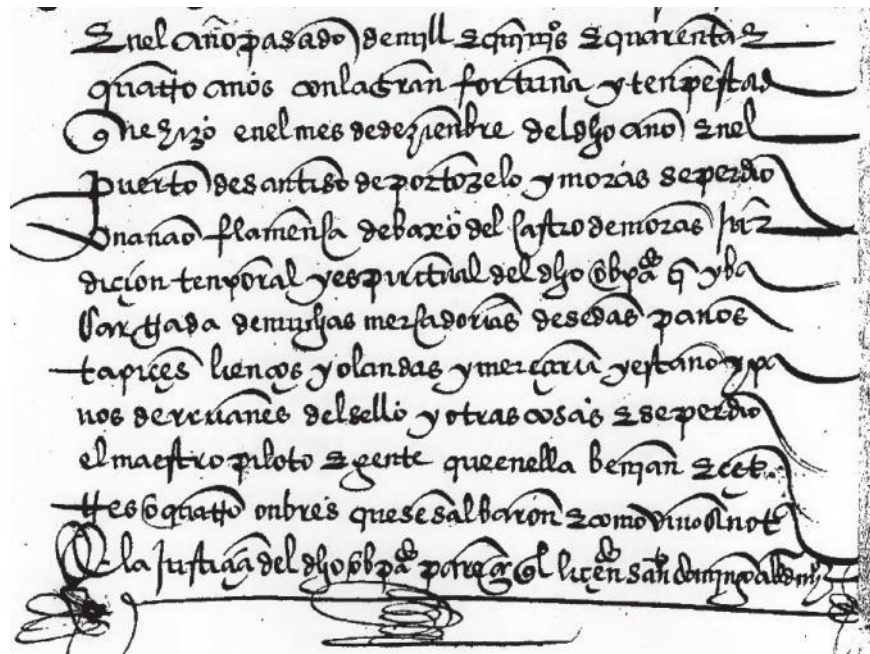 Enel año pasado de mill e quinios e quarenta e
quatro anos con la gran fortuna y tenpestad
que hizo en el mes de dezienbre del dho año en el
puerto de santiso de portozelo y moras se perdio
una nao flamenca debaxo del castro de moras juri
diçion tenporal y espiritual del dho obpado q yba
cargada de muchas mercadorias de sedas panos
tapiçes lienços y olandas y merçaria y estano y pa
nos de ruanes del sello y otras cosas e se perdio
el maestro piloto e gente que en ella benian eçet.
tres o quatro onbres que se salbaron e como vino a not
la justiçia del dho obpado pareçer el liçendo san domingo